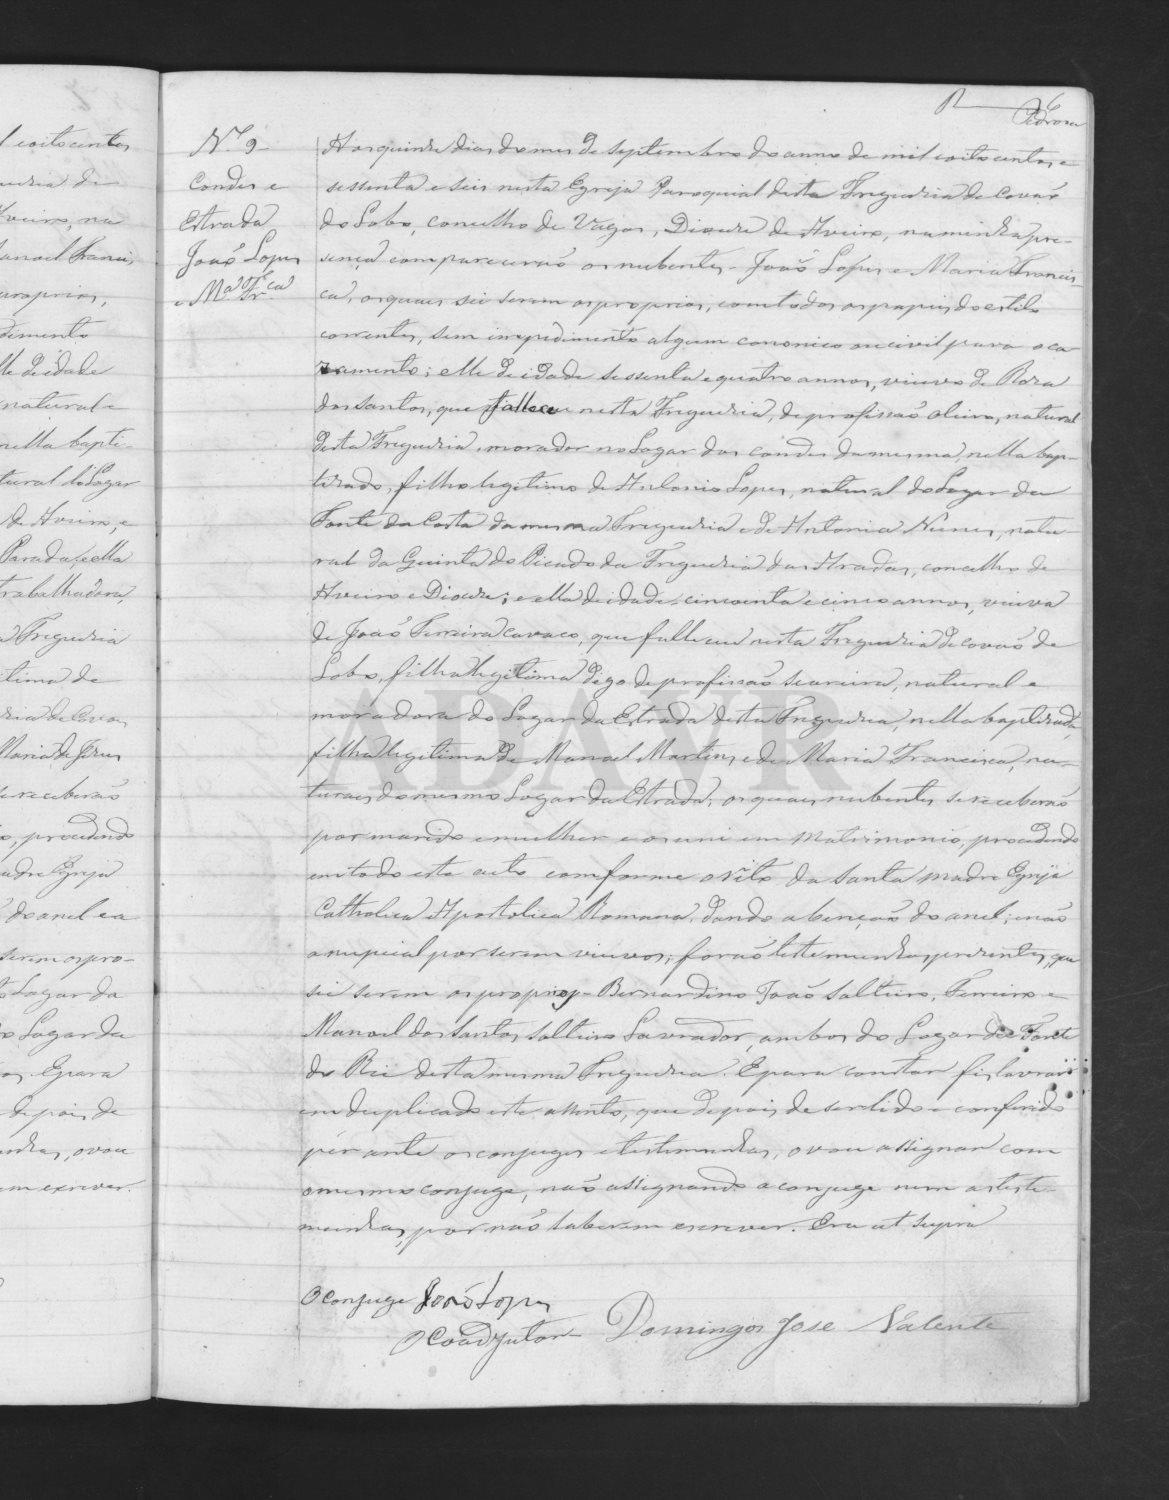 R 6
Pedrosa
N.º 9
Condes e
Estrada
João Lopes
e M.ª Fr.ca
Aos quinze dias do mes de Septembro do anno de mil oito centos e
sessenta e seis nesta Egreja Paroquial desta Freguezia de Covão
do Lobo, concelho de Vagos, Diocese de Aveiro, na minha pre-
sença compareceraõ os nubentes João Lopes e Maria Francis-
ca, os quaes sei serem os proprios, com todos os papeis do estilo
correntes, sem impedimento algum canonico ou civil para o ca
zamento; elle de idade sessenta e quatro annos, viuvo de Roza
dos Santos, que falleceu nesta Freguezia, de profissaõ oleiro, natural
desta Freguezia, morador no Lugar dos Condes da mesma, nella bap-
tizado, filho legitimo de Antonio Lopes, natural do Lugar da
Fonte da Costa da mesma Freguezia e de Antonia Nunes, natu-
ral da Quinta do Picado da Freguezia das Aradas, concelho de
Aveiro e Diocese; e ella de idade cincoenta e cinco annos, viuva
de Joaõ Ferreira Cavaco, que falleceu nesta Freguezia de Covaõ do
Lobo, filha legitima digo de profissaõ seareira, natural e
moradora do Lugar da Estrada desta Freguezia, nella baptizada,
filha legitima de Manoel Martins e de Maria Francisca, na-
turaes do mesmo Lugar da Estrada; os quaes nubentes se receberaõ
por marido e mulher e os uni em Matrimonio, procedendo
em todo este acto comforme o rito da Santa Madre Egreja
Catholica Apostolica Romana, dando a bençaõ do anel; e naõ
a nupcial por serem viuvos; foraõ testemunhas prezentes, que
sei serem os proprios Bernardino Joaõ Salteiro, Ferreiro e
Manoel dos Santos Salteiro Lavrador, ambos do Lugar da Fonte
do Rei desta mesma Freguezia. E para constar fis lavrar
em duplicado este assento, que depois de ser lido e conferido
per ante os conjuges e testemunhas, o vou assignar com
o mesmo conjuge, naõ assignando a conjuge nem as teste-
munhas, por naõ saberem escrever. Era ut supra
O conjuge João Lopes
O Coadjutor Domingos Jose Valente
ADAVR